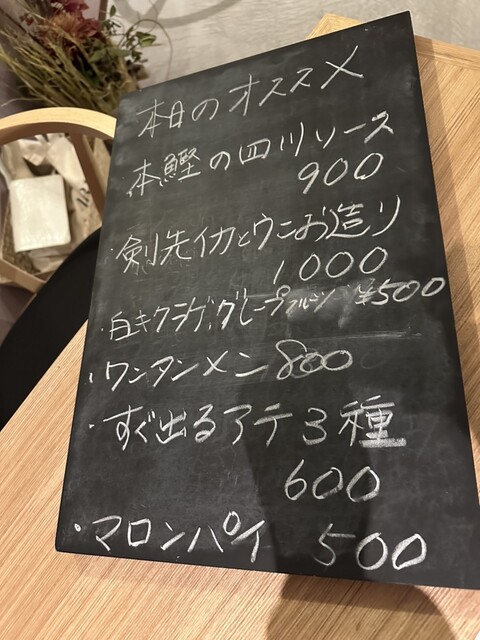 本日のオススメ
本鰹の四川ソース
900
・剣先イカとウニお造り
1000
・白キクラゲ、グレープフルーツ ¥500
・ワンタンメン 800
・すぐ出るアテ3種
600
・マロンパイ 500